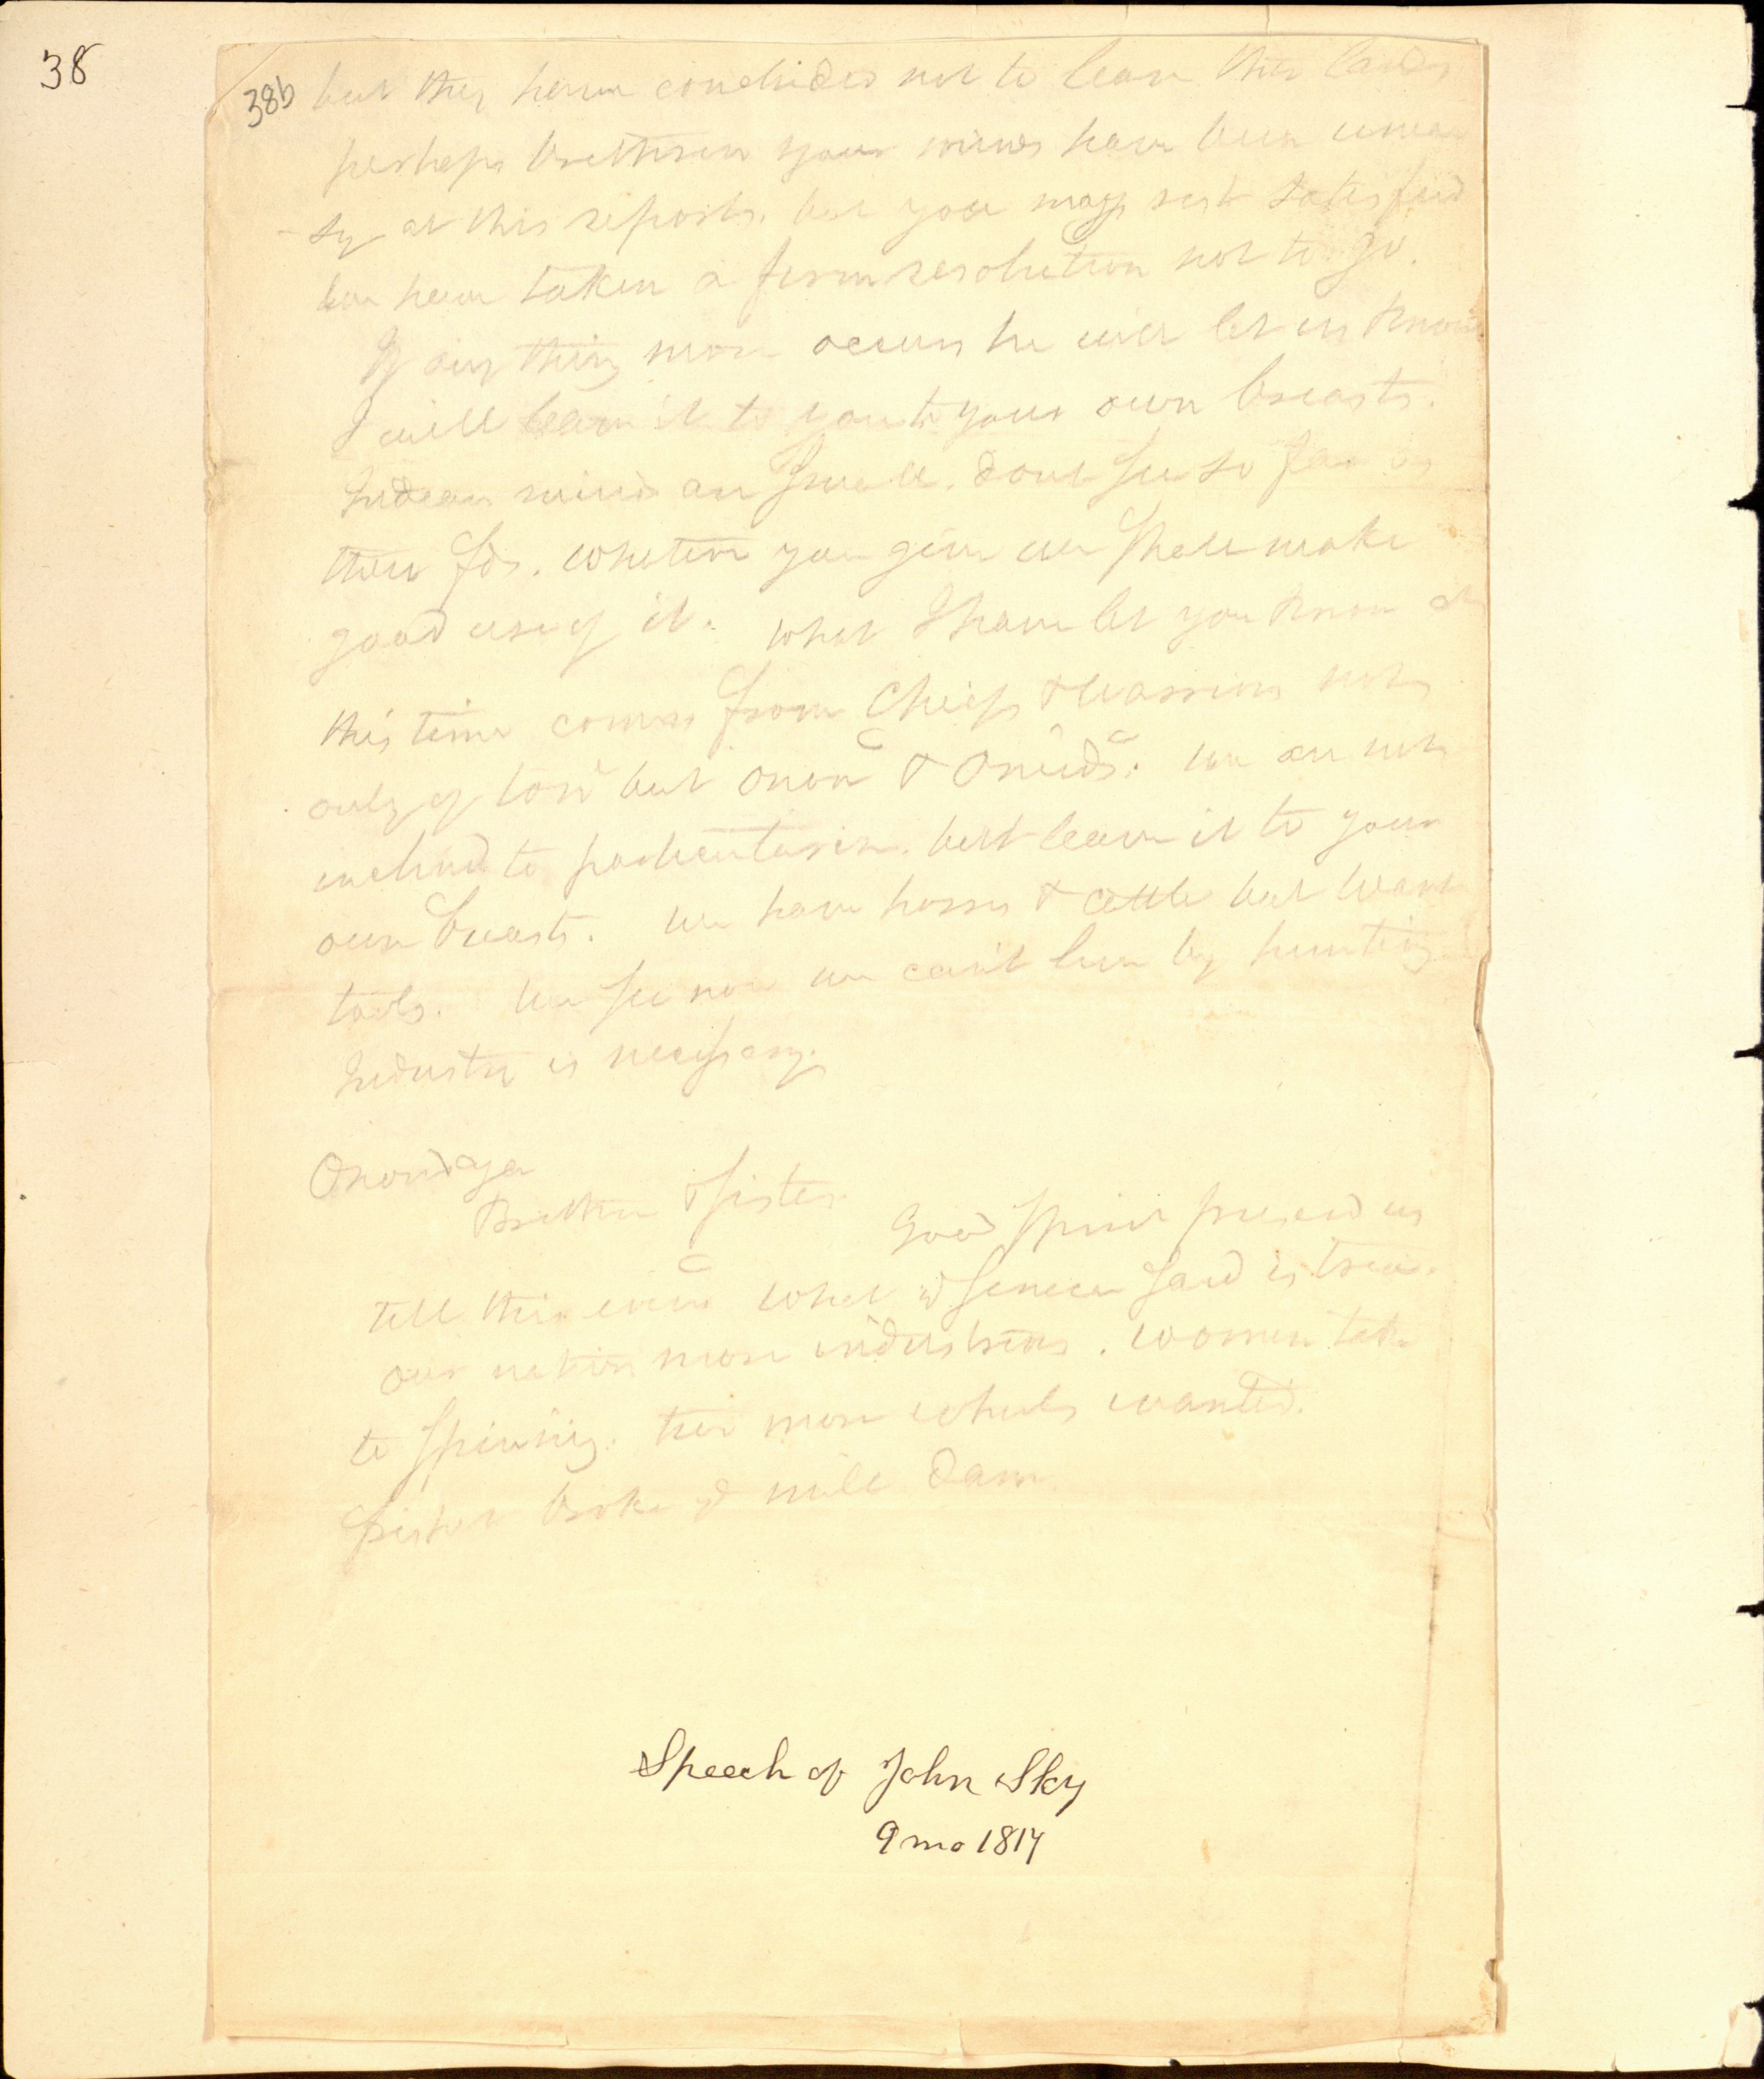 38
38b but they have concluded not to leave their lands
perhaps brethren your minds have been unea
-sy at this reports. but you may rest satesfied
we have taken a firm resolution not to go.
If any thing more occurs he will let us know
I will leave it to you to your own breasts.
Indean minds are small. dont see so far as
their fds. whatever you give we shall make
good use of it. what I have let you know at
this time comes from Chiefs & Warriors not
only of ton̄ but onon̄ & Oneids̄. we are not
inclind to particularise. but leave it to your
own breasts. we have horses & cattle but want
tools. we see now we can't live by hunting
Industry is necessary.
Onondaga
Brethren & sisters
Good Spirit preservd us
till this even̄ what ye Seneca said is true.
our nation more industrious. women take
to spinning. two more wheels wanted.
freshet broke ye mill dam
Speech of John Sky
9 mo 1817